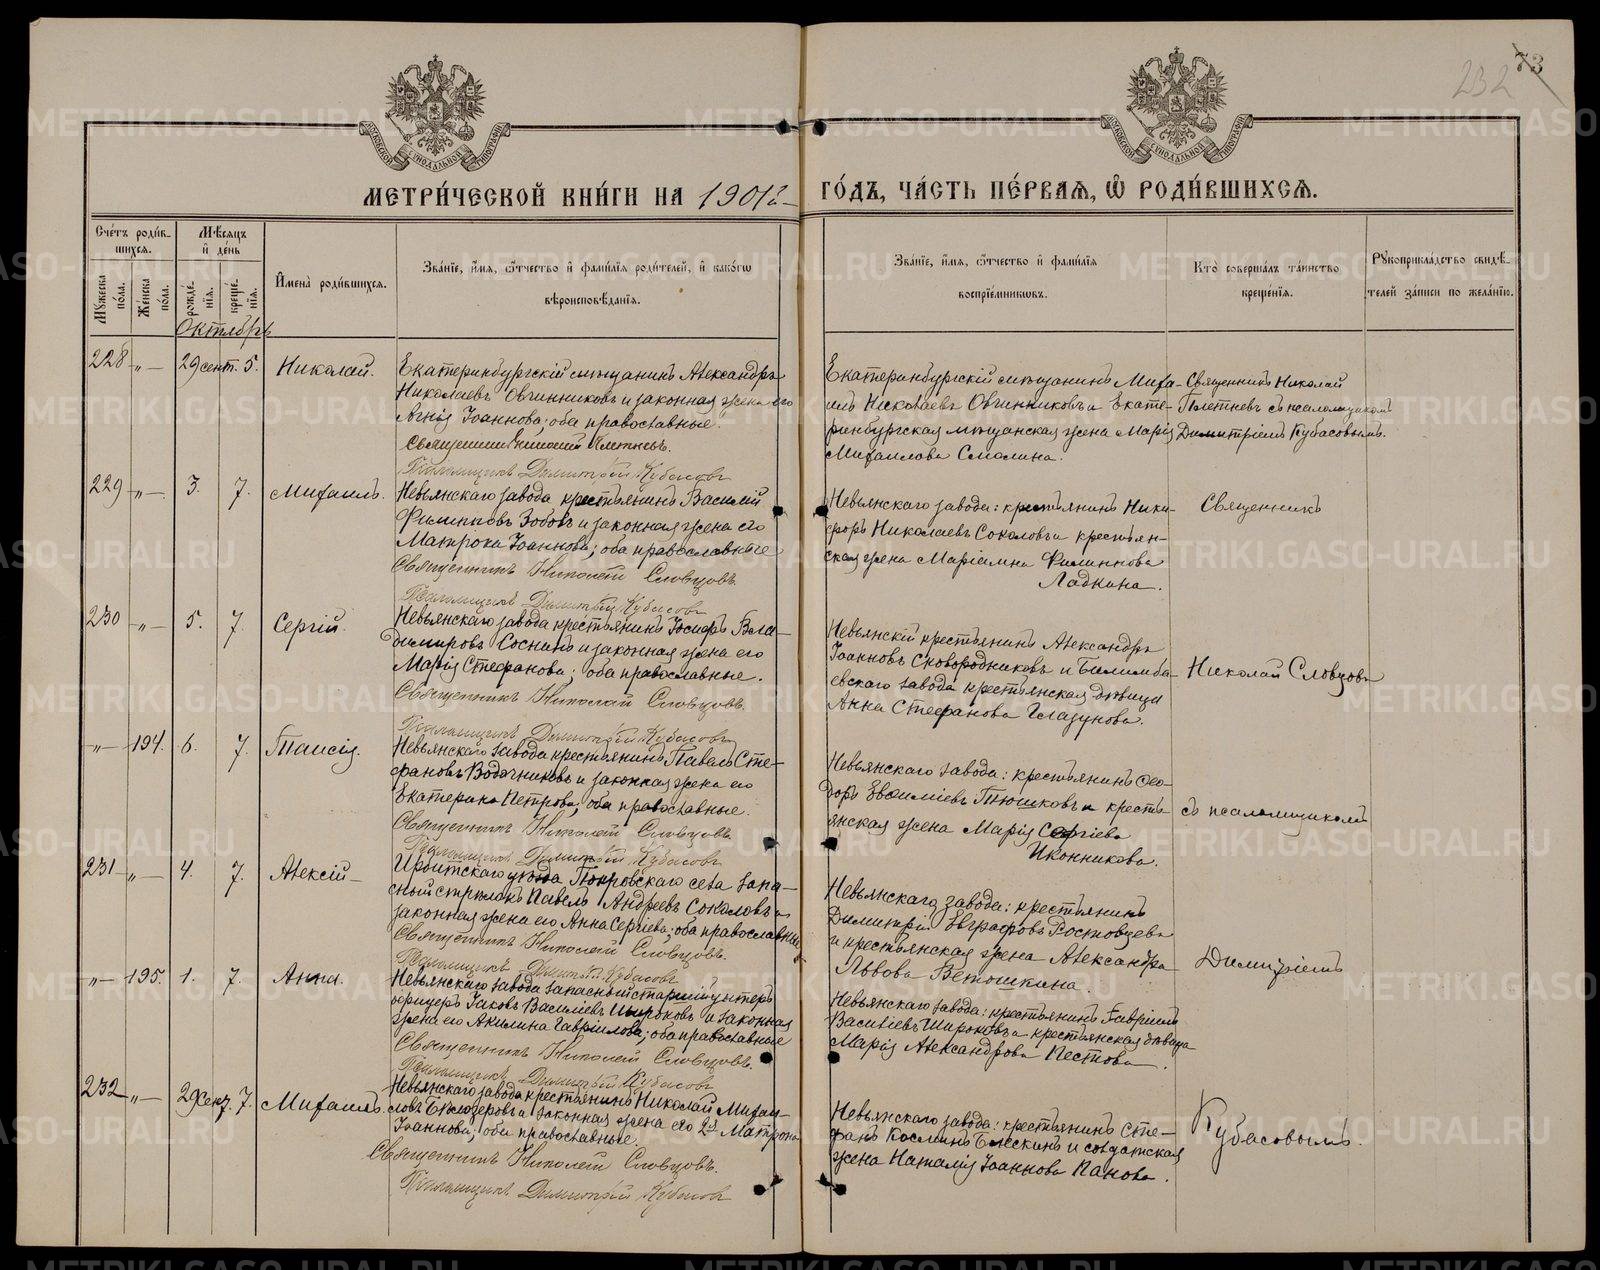 232
73
МЕТРИ́ЧЕСКОЙ КНИ́ГИ НА 1901й
ГО́ДЪ, ЧА́СТЬ ПЕ́РВАѦ, Ѽ РОДИ́ВШИХСѦ.
Сче́тъ роди́в-
шихсѧ.
Мꙋжеска по́ла.
Же́нска по́ла.
Мѣ́сѧцъ
и҆ де́нь
рожде́-нїѧ.
креще́-нїѧ.
И҆мена̀ роди́вшихсѧ.
Зва́нїе, и҆́мѧ, ѻ҆́тчество и҆ фами́лїѧ роди́телей, и҆ како́гѡ
вѣроисповѣ́данїѧ.
Зва́нїе, и҆́мѧ, ѻ҆́тчество и҆ фами́лїѧ
воспрїе́мникѡвъ.
Кто̀ соверша́лъ та́инство
креще́нїѧ.
Рꙋкоприкла́дство свидѣ́-
телей за́писи по жела́нїю.
Октябрь
228 -„- 29 сент. 5. Николай.
Екатеринбургскій мѣщанинъ Александръ
Николаевъ Овчинниковъ и законная жена его
Агнія Іоаннова; оба православные.
Священникъ Николай Плетневъ.
Псаломщикъ Димитрій Кубасовъ
Екатеринбургскій мѣщанинъ Миха-
илъ Николаевъ Овчинниковъ и Екате-
ринбургская мѣщанская жена Марія
Михаилова Смолина.
Священникъ Николай
Плетневъ съ псаломщикомъ
Димитріемъ Кубасовымъ.
229 -„- 3. 7. Михаилъ.
Невьянскаго завода крестьянинъ Василій
Филипповъ Зобовъ и законная жена его
Матрона Іоаннова; оба православные
Священникъ Николай Словцовъ.
Псаломщикъ Димитрій Кубасовъ
Невьянскаго завода: крестьянинъ Ники-
форъ Николаевъ Соколовъ и крестьян-
ская жена Маріамна Филиппова
Ладкина.
Священникъ
230 -„- 5. 7. Сергій.
Невьянскаго завода крестьянинъ Іосифъ Вла-
димировъ Соснинъ и законная жена его
Марія Стефанова; оба православные.
Священникъ Николай Словцовъ.
Псаломщикъ Димитрій Кубасовъ
Невьянскій крестьянинъ Александръ
Іоанновъ Сковородниковъ и Билимба-
евскаго завода крестьянская дѣвица
Анна Стефанова Глазунова.
Николай Словцовъ
-„- 194. 6. 7. Таисія.
Невьянскаго завода крестьянинъ Павелъ Сте-
фановъ Водочниковъ и законная жена его
Екатерина Петрова; оба православные.
Священникъ Николай Словцовъ.
Псаломщикъ Димитрій Кубасовъ
Невьянскаго завода: крестьянинъ Ѳео-
доръ Евѳиміевъ Тюшковъ и кресть-
янская жена Марія Сергіева
Иконникова.
съ псаломщикомъ
231 -„- 4. 7. Алексій
Ирбитскаго уѣзда Покровскаго села запа-
сный стрѣлокъ Павелъ Андреевъ Соколовъ и
законная жена его Анна Сергіева; оба православные
Священникъ Николай Словцовъ.
Псаломщикъ Димитрій Кубасовъ
Невьянскаго завода: крестьянинъ
Димитрій Евграфовъ Ростовцевъ
и крестьянская жена Александра
Львова Ветошкина.
Димитріемъ
-„- 195. 1. 7. Анна.
Невьянскаго завода запасный старшій унтеръ
офицеръ Іаковъ Василіевъ Широковъ и законная
жена его Акилина Гавріилова; оба православные
Священникъ Николай Словцовъ.
Псаломщикъ Димитрій Кубасовъ
Невьянскаго завода: крестьянинъ Гавріилъ
Василіевъ Широковъ и крестьянская дѣвица
Марія Александрова Пестова.
232 -„- 29 сент. 7. Михаилъ
Невьянскаго завода крестьянинъ Николай Михаи-
ловъ Бѣлозеровъ и законная жена его 2я Матрона
Іоаннова; оба православные.
Священникъ Николай Словцовъ.
Псаломщикъ Димитрій Кубасовъ
Невьянскаго завода: крестьянинъ Сте-
фанъ Косминъ Блескинъ и солдатская
жена Наталія Іоаннова Панова.
Кубасовымъ.
METRIKI.GASO-URAL.RU